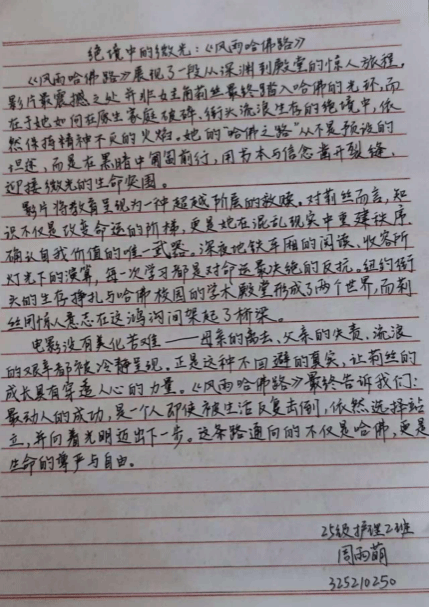 绝境中的微光：《风雨哈佛路》
《风雨哈佛路》展现了一段从深渊到殿堂的惊人旅程。
影片最震撼之处并非女主角莉丝最终踏入哈佛的光环，而
在于她如何在原生家庭破碎、街头流浪生存的绝境中，依
然保持精神不灭的火焰。她的“哈佛之路”从不是预设的
坦途，而是在黑暗中匍匐前行，用书本与信念凿开裂缝，
迎接微光的生命突围。
影片将教育呈现为一种超越阶层的救赎。对莉丝而言，知
识不仅是改革命运的阶梯，更是她在混乱现实中重建秩序、
确认自我价值的唯一武器。深夜地铁车厢的阅读、收容所
灯光下的演算，每一次学习都是对命运最决绝的反抗。纽约街
头的生存挣扎与哈佛校园的学术殿堂形成了两个世界，而莉
丝用惊人意志在这鸿沟间架起了桥梁。
电影没有美化苦难——母亲的离去、父亲的失责、流浪
的艰辛都被冷静呈现。正是这种不回避的真实，让莉丝的
成长具有穿透人心的力量。《风雨哈佛路》最终告诉我们：
最动人的成功，是一个人即使被生活反复击倒，依然选择站
立，并向着光明迈出下一步。这条路通向的不仅是哈佛，更是
生命的尊严与自由。
25级护理2班
周雨萌
325210250